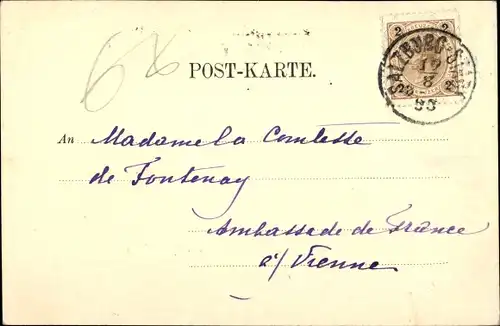 2 2
SALZBURG-STADT
19
8
99
68
POST-KARTE.
An Madame la Comtesse
de Fontenay
Ambassade de France
à/ Vienne